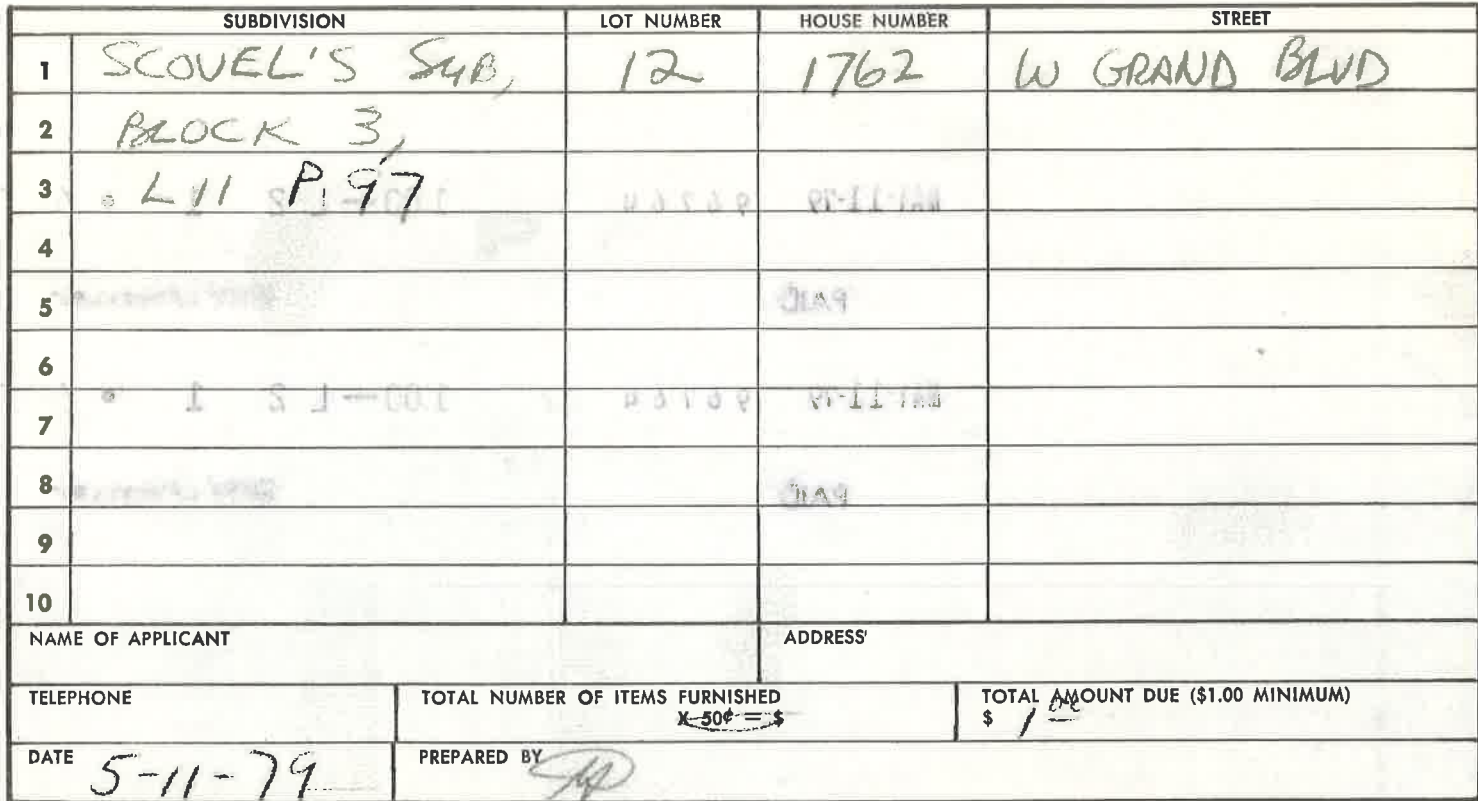 SUBDIVISION LOT NUMBER HOUSE NUMBER STREET
1 SCOVEL'S SUB, 12 1762 W GRAND BLVD
2 BLOCK 3,
3 L11 P. 97
4
5 PAID
6
MAY-11-79 96764 1.00-L 2 1
7
8 PAID
9
10
NAME OF APPLICANT ADDRESS
TELEPHONE TOTAL NUMBER OF ITEMS FURNISHED TOTAL AMOUNT DUE ($1.00 MINIMUM)
X 50¢ = $ $ 1 00
DATE 5-11-79 PREPARED BY